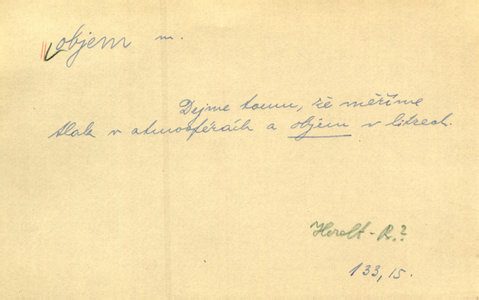 objem m.
Dejme tomu, že měříme
tlak v atmosférách a objem v litrech.
Herolt - R.?
133, 15.